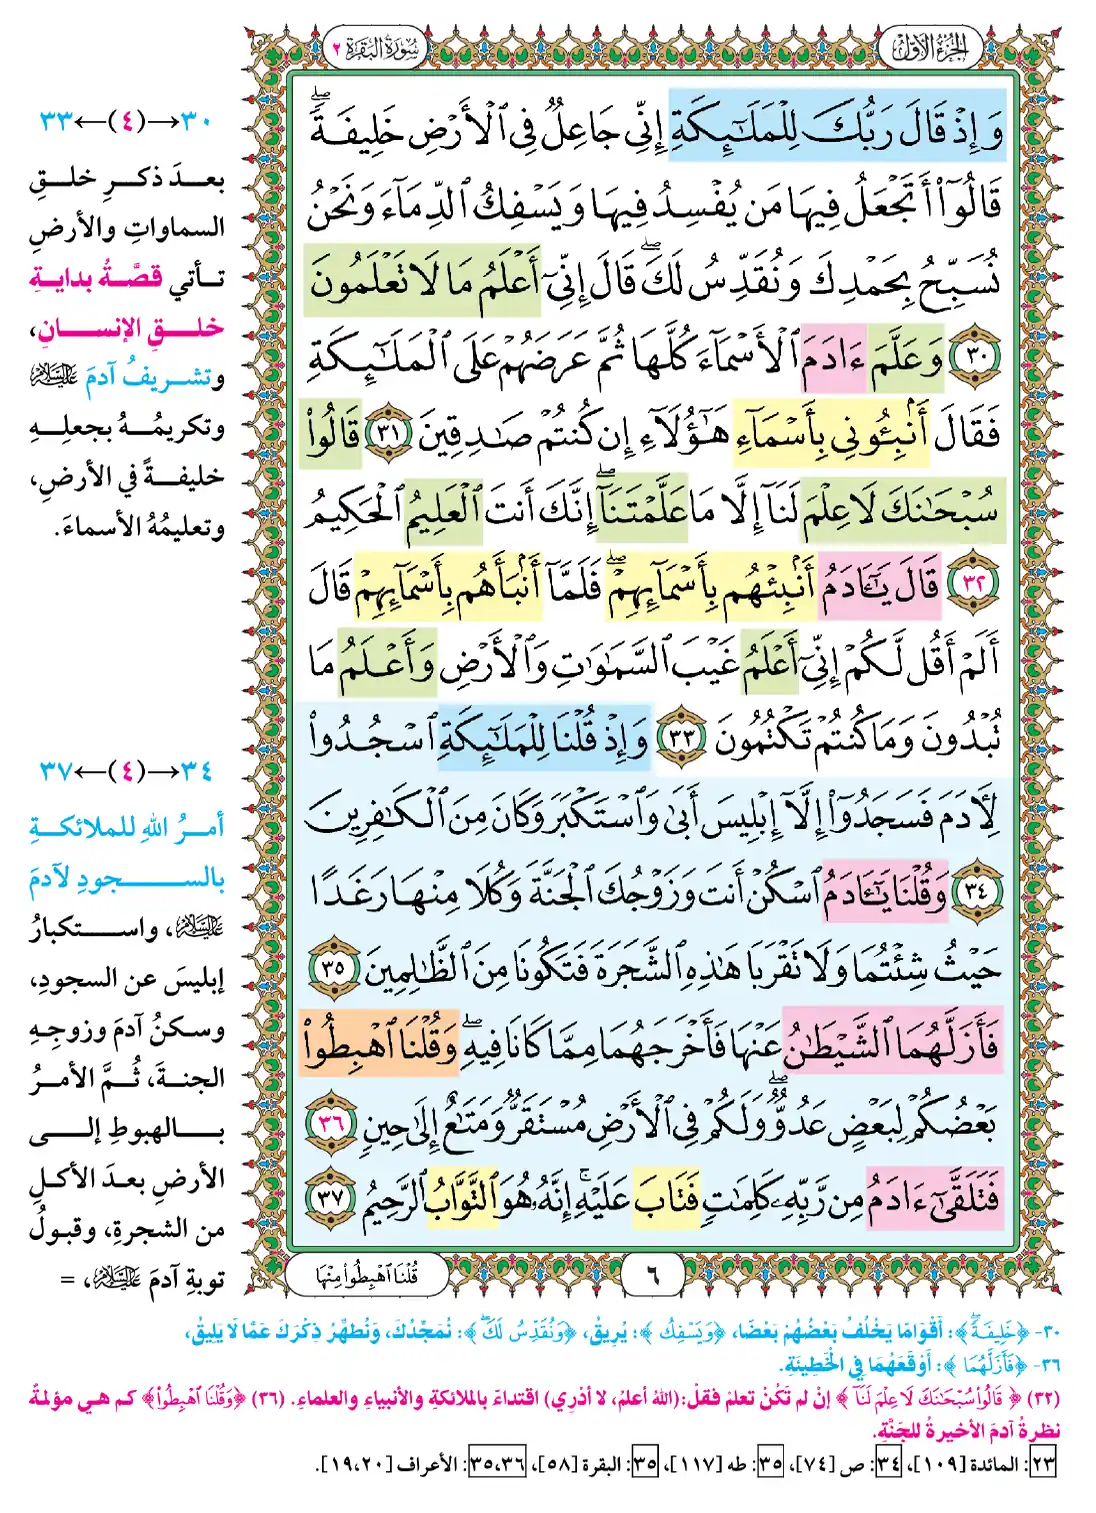 الجزء الأول
سورة البقرة ٢
وَإِذْ قَالَ رَبُّكَ لِلْمَلَـٰٓئِكَةِ إِنِّى جَاعِلٌ فِى ٱلْأَرْضِ خَلِيفَةً ۖ
قَالُوٓا۟ أَتَجْعَلُ فِيهَا مَن يُفْسِدُ فِيهَا وَيَسْفِكُ ٱلدِّمَآءَ وَنَحْنُ
نُسَبِّحُ بِحَمْدِكَ وَنُقَدِّسُ لَكَ ۖ قَالَ إِنِّىٓ أَعْلَمُ مَا لَا تَعْلَمُونَ
٣٠ وَعَلَّمَ ءَادَمَ ٱلْأَسْمَآءَ كُلَّهَا ثُمَّ عَرَضَهُمْ عَلَى ٱلْمَلَـٰٓئِكَةِ
فَقَالَ أَنۢبِـُٔونِى بِأَسْمَآءِ هَـٰٓؤُلَآءِ إِن كُنتُمْ صَـٰدِقِينَ ٣١ قَالُوا۟
سُبْحَـٰنَكَ لَا عِلْمَ لَنَآ إِلَّا مَا عَلَّمْتَنَآ ۖ إِنَّكَ أَنتَ ٱلْعَلِيمُ ٱلْحَكِيمُ
٣٢ قَالَ يَـٰٓـَٔادَمُ أَنۢبِئْهُم بِأَسْمَآئِهِمْ ۖ فَلَمَّآ أَنۢبَأَهُم بِأَسْمَآئِهِمْ قَالَ
أَلَمْ أَقُل لَّكُمْ إِنِّىٓ أَعْلَمُ غَيْبَ ٱلسَّمَـٰوَٰتِ وَٱلْأَرْضِ وَأَعْلَمُ مَا
تُبْدُونَ وَمَا كُنتُمْ تَكْتُمُونَ ٣٣ وَإِذْ قُلْنَا لِلْمَلَـٰٓئِكَةِ ٱسْجُدُوا۟
لِـَٔادَمَ فَسَجَدُوٓا۟ إِلَّآ إِبْلِيسَ أَبَىٰ وَٱسْتَكْبَرَ وَكَانَ مِنَ ٱلْكَـٰفِرِينَ
٣٤ وَقُلْنَا يَـٰٓـَٔادَمُ ٱسْكُنْ أَنتَ وَزَوْجُكَ ٱلْجَنَّةَ وَكُلَا مِنْهَا رَغَدًا
حَيْثُ شِئْتُمَا وَلَا تَقْرَبَا هَـٰذِهِ ٱلشَّجَرَةَ فَتَكُونَا مِنَ ٱلظَّـٰلِمِينَ ٣٥
فَأَزَلَّهُمَا ٱلشَّيْطَـٰنُ عَنْهَا فَأَخْرَجَهُمَا مِمَّا كَانَا فِيهِ ۖ وَقُلْنَا ٱهْبِطُوا۟
بَعْضُكُمْ لِبَعْضٍ عَدُوٌّ ۖ وَلَكُمْ فِى ٱلْأَرْضِ مُسْتَقَرٌّ وَمَتَـٰعٌ إِلَىٰ حِينٍ ٣٦
فَتَلَقَّىٰٓ ءَادَمُ مِن رَّبِّهِۦ كَلِمَـٰتٍ فَتَابَ عَلَيْهِ ۚ إِنَّهُۥ هُوَ ٱلتَّوَّابُ ٱلرَّحِيمُ ٣٧
٦
قُلْنَا ٱهْبِطُوا۟ مِنْهَا
٣٠→(٤)←٣٣
بعدَ ذكرِ خلقِ
السماواتِ والأرضِ
تأتي قصَّةُ بدايةِ
خلقِ الإنسانِ،
وتشريفُ آدمَ عليه السلام
وتكريمُهُ بجعلِهِ
خليفةً في الأرضِ،
وتعليمُهُ الأسماءَ.
٣٤→(٤)←٣٧
أمرُ اللهِ للملائكةِ
بالسجودِ لآدمَ
عليه السلام، واستكبارُ
إبليسَ عن السجودِ،
وسكنُ آدمَ وزوجِهِ
الجنةَ، ثُمَّ الأمرُ
بالهبوطِ إلى
الأرضِ بعدَ الأكلِ
من الشجرةِ، وقبولُ
توبةِ آدمَ عليه السلام، =
٣٠- ﴿خَلِيفَةً ۖ﴾: أَقْوَامًا يَخْلُفُ بَعْضُهُمْ بَعْضًا، ﴿وَيَسْفِكُ﴾: يُرِيقُ، ﴿وَنُقَدِّسُ لَكَ ۖ﴾: نُمَجِّدُكَ، وَنُطَهِّرُ ذِكْرَكَ عَمَّا لَا يَلِيقُ،
٣٦- ﴿فَأَزَلَّهُمَا﴾: أَوْقَعَهُمَا فِي الْخَطِيئَةِ.
(٣٢) ﴿قَالُوا۟ سُبْحَـٰنَكَ لَا عِلْمَ لَنَآ﴾ إنْ لم تَكُنْ تعلمْ فقلْ: (اللهُ أعلمُ، لا أدري) اقتداءً بالملائكةِ والأنبياءِ والعلماءِ. (٣٦) ﴿وَقُلْنَا ٱهْبِطُوا۟﴾ كم هي مؤلمةٌ
نظرةُ آدمَ الأخيرةُ للجَنَّةِ.
٢٣: المائدة [١٠٩]، ٣٤: ص [٧٤]، ٣٥: طه [١١٧]، ٣٥: البقرة [٥٨]، ٣٥،٣٦: الأعراف [١٩،٢٠].